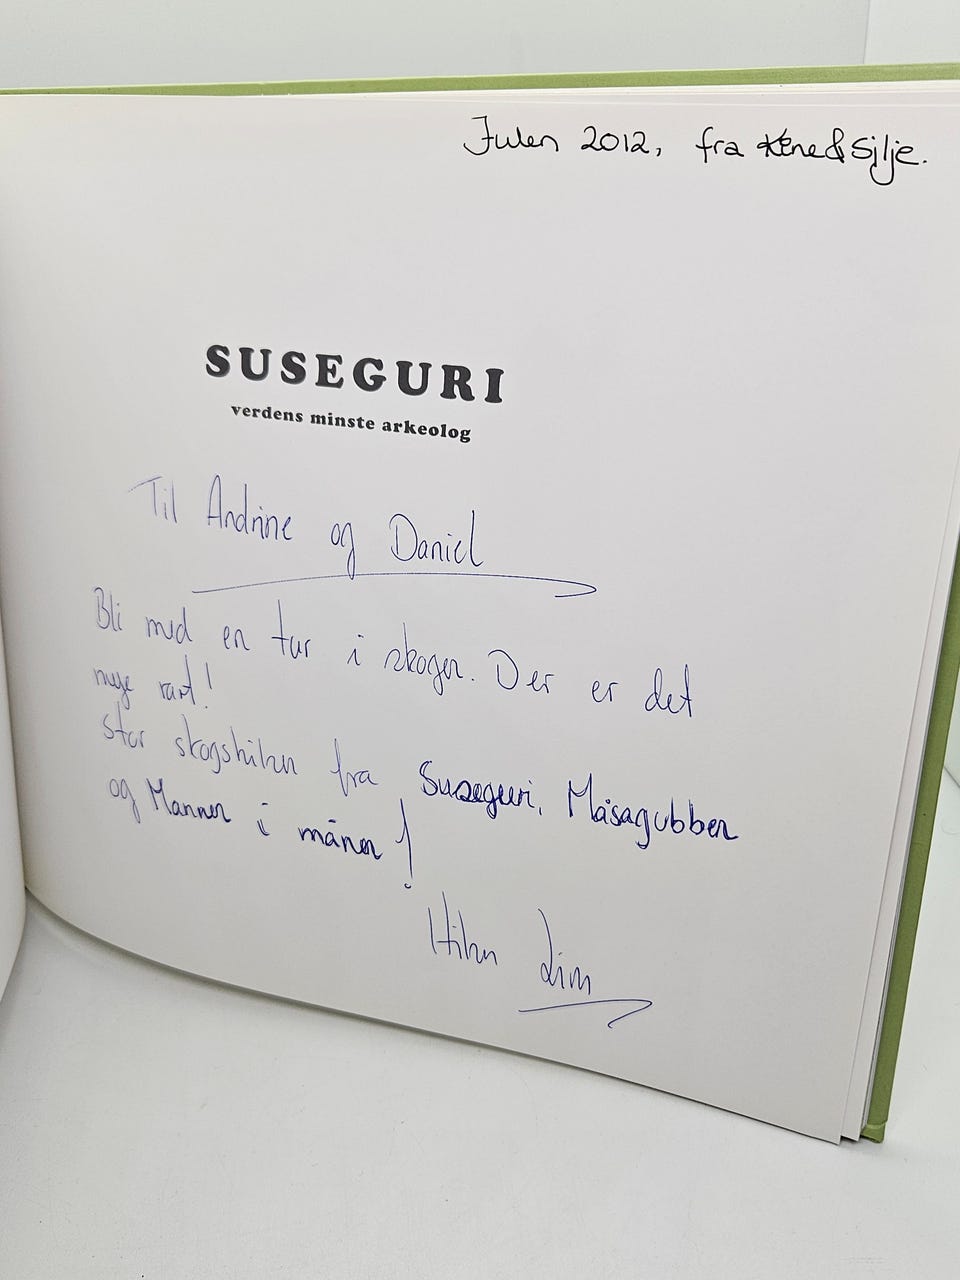 Julen 2012, fra Rene & Silje.
SUSEGURI
verdens minste arkeolog
Til Andrine og Daniel
Bli med en tur i skogen. Der er det
mye rart!
Stor skogshilsen fra Suseguri, Måsagubben
og Mannen i månen!
Hilsen Lim